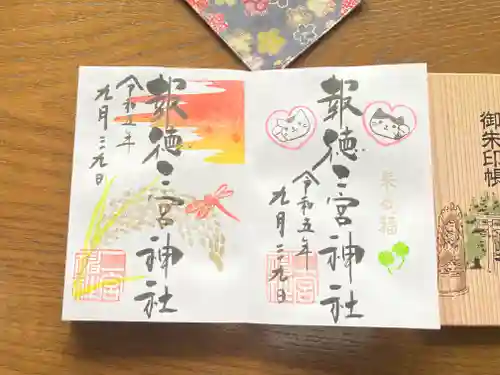 御朱印帳
報徳二宮神社
令和五年
九月二九日
報徳二宮神社
令和五年
九月二九日